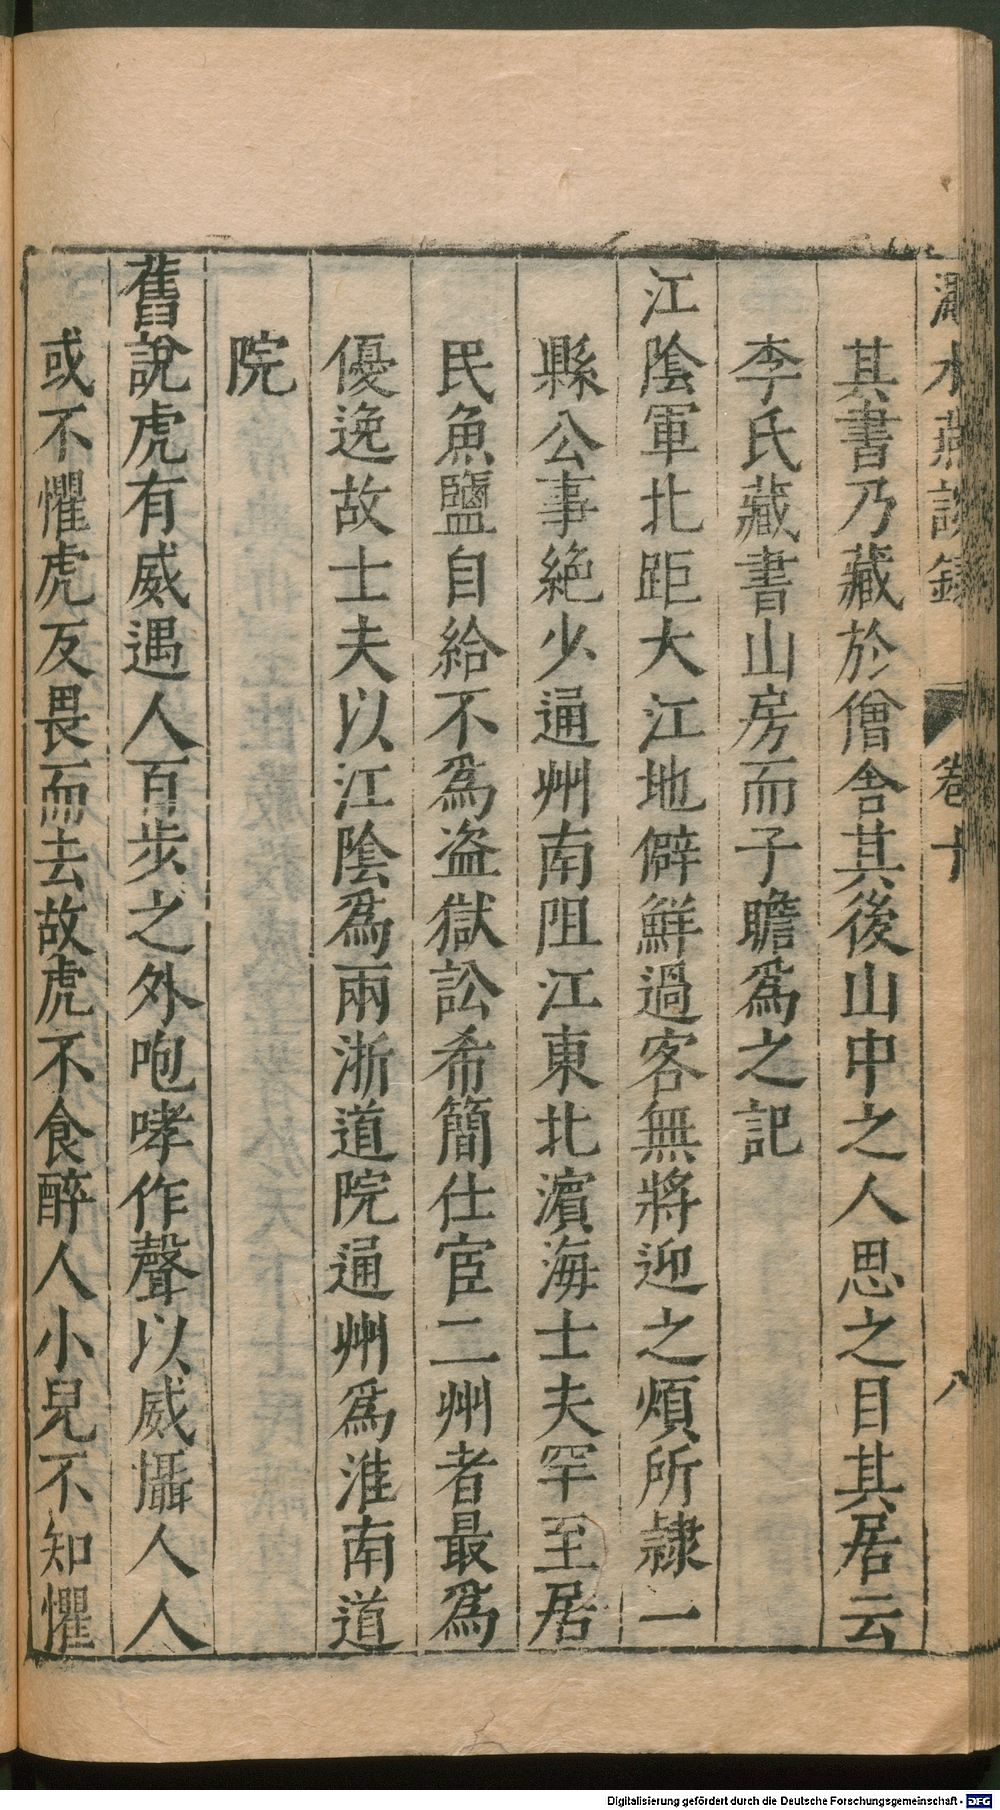 澠水燕談錄 卷十 八
其書乃藏於僧舍其後山中之人思之目其居云
李氏藏書山房而子瞻爲之記
江陰軍北距大江地僻鮮過客無將迎之煩所隷一
縣公事絶少通州南阻江東北濵海士夫罕至居
民魚鹽自給不爲盗獄訟希簡仕宦二州者最爲
優逸故士夫以江陰爲兩浙道院通州爲淮南道
院
舊說虎有威遇人百步之外咆哮作聲以威攝人人
或不懼虎反畏而去故虎不食醉人小兒不知懼
Digitalisierung gefördert durch die Deutsche Forschungsgemeinschaft - DFG